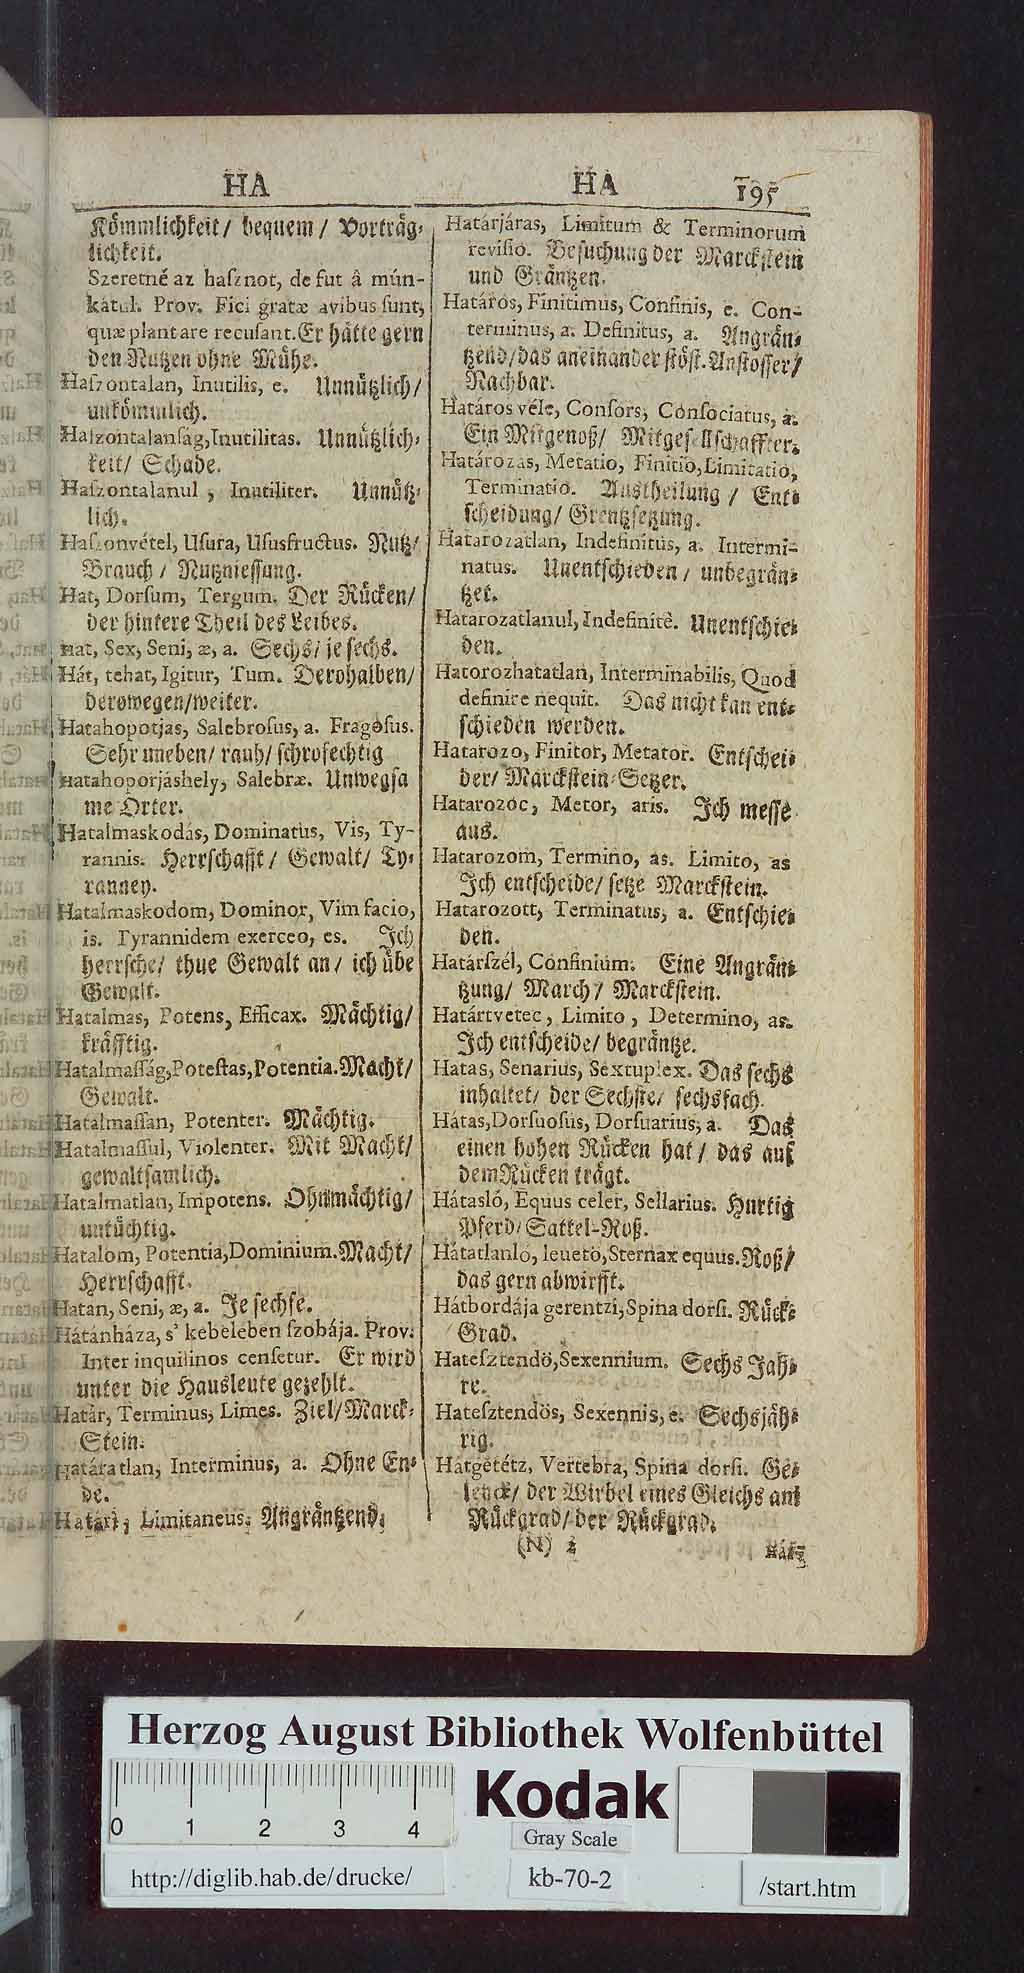 HA
HA
195
Kömmlichkeit/ bequem/ Vorträg-
lichkeit.
Szeretné az haſznot, de fut â mún-
kátul. Prov. Fici gratæ avibus ſunt,
quæ plantare recuſant. Er hätte gern
den Nutzen ohne Mühe.
Haſzontalan, Inutilis, e. Unnützlich/
unkömmlich.
Haſzontalanſág, Inutilitas. Unnützlich-
keit/ Schade.
Haſzontalanul, Inutiliter. Unnütz-
lich.
Haſzonvétel, Uſura, Uſusfructus. Nutz/
Brauch/ Nutznieſſung.
Hat, Dorſum, Tergum. Der Rücken/
der hintere Theil des Leibes.
Hat, Sex, Seni, æ, a. Sechs/ je ſechs.
Hát, tehat, Igitur, Tum. Derohalben/
derowegen/ weiter.
Hatahopotjas, Salebroſus, a. Fragoſus.
Sehr uneben/ rauh/ ſchrofechtig
Hatahoporjáshely, Salebræ. Unwegſa
me Orter.
Hatalmaskodás, Dominatus, Vis, Ty-
rannis. Herrſchafft/ Gewalt/ Ty-
ranney.
Hatalmaskodom, Dominor, Vim facio,
is. Tyrannidem exerceo, es. Ich
herrſche/ thue Gewalt an/ ich übe
Gewalt.
Hatalmas, Potens, Efficax. Mächtig/
kräfftig.
Hatalmaſſág, Poteſtas, Potentia. Macht/
Gewalt.
Hatalmaſſan, Potenter. Mächtig.
Hatalmaſſul, Violenter. Mit Macht/
gewaltſamlich.
Hatalmatlan, Impotens. Ohnmächtig/
untüchtig.
Hatalom, Potentia, Dominium. Macht/
Herrſchafft.
Hatan, Seni, æ, a. Je ſechſe.
Hátánháza, s' kebeleben ſzobája. Prov.
Inter inquilinos cenſetur. Er wird
unter die Hausleute gezehlt.
Határ, Terminus, Limes. Ziel/ Marck-
Stein.
Határatlan, Interminus, a. Ohne En-
de.
Határi, Limitaneus. Angräntzend.
Határjáras, Limitum & Terminorum
reviſio. Beſuchung der Marckſtein
und Gräntzen.
Határos, Finitimus, Confinis, e. Con-
terminus, a. Definitus, a. Angrän-
tzend/ das aneinander ſtöſt. Anſtoſſer/
Nachbar.
Határos véle, Conſors, Conſociatus, a.
Ein Mitgenoß/ Mitgeſellſchaffter.
Határozás, Metatio, Finitio, Limitatio,
Terminatio. Austheilung/ Ent-
ſcheidung/ Grentzſetzung.
Hatarozatlan, Indefinitus, a. Intermi-
natus. Unentſchieden/ unbegrän-
tzet.
Hatarozatlanul, Indefinitè. Unentſchie-
den.
Hatorozhatatlan, Interminabilis, Quod
definire nequit. Das nicht kan ent-
ſchieden werden.
Hatarozo, Finitor, Metator. Entſchei-
der/ Marckſtein-Setzer.
Hatarozóc, Metor, aris. Ich meſſe
aus.
Hatarozom, Termino, as. Limito, as
Ich entſcheide/ ſetze Marckſtein.
Hatarozott, Terminatus, a. Entſchie-
den.
Határſzél, Confinium. Eine Angrän-
tzung/ March/ Marckſtein.
Határtvetec, Limito, Determino, as.
Ich entſcheide/ begräntze.
Hatas, Senarius, Sextuplex. Das ſechs
inhaltet/ der Sechſte/ ſechsfach.
Hátas, Dorſuoſus, Dorſuarius, a. Das
einen hohen Rücken hat/ das auf
dem Rücken trägt.
Hátasló, Equus celer, Sellarius. Hurtig
Pferd/ Sattel-Roß.
Hátatlanló, levetö, Sternax equus. Roß/
das gern abwirfft.
Hátbordája gerentzi, Spina dorſi. Rück-
Grad.
Hateſztendö, Sexennium. Sechs Jah-
re.
Hateſztendös, Sexennis, e. Sechsjäh-
rig.
Hátgététz, Vertebra, Spina dorſi. Ge-
lenck/ der Wirbel eines Gleichs am
Rückgrad/ der Rückgrad.
(N) 2
Herzog August Bibliothek Wolfenbüttel
0 1 2 3 4
Kodak
Gray Scale
http://diglib.hab.de/drucke/
kb-70-2
/start.htm